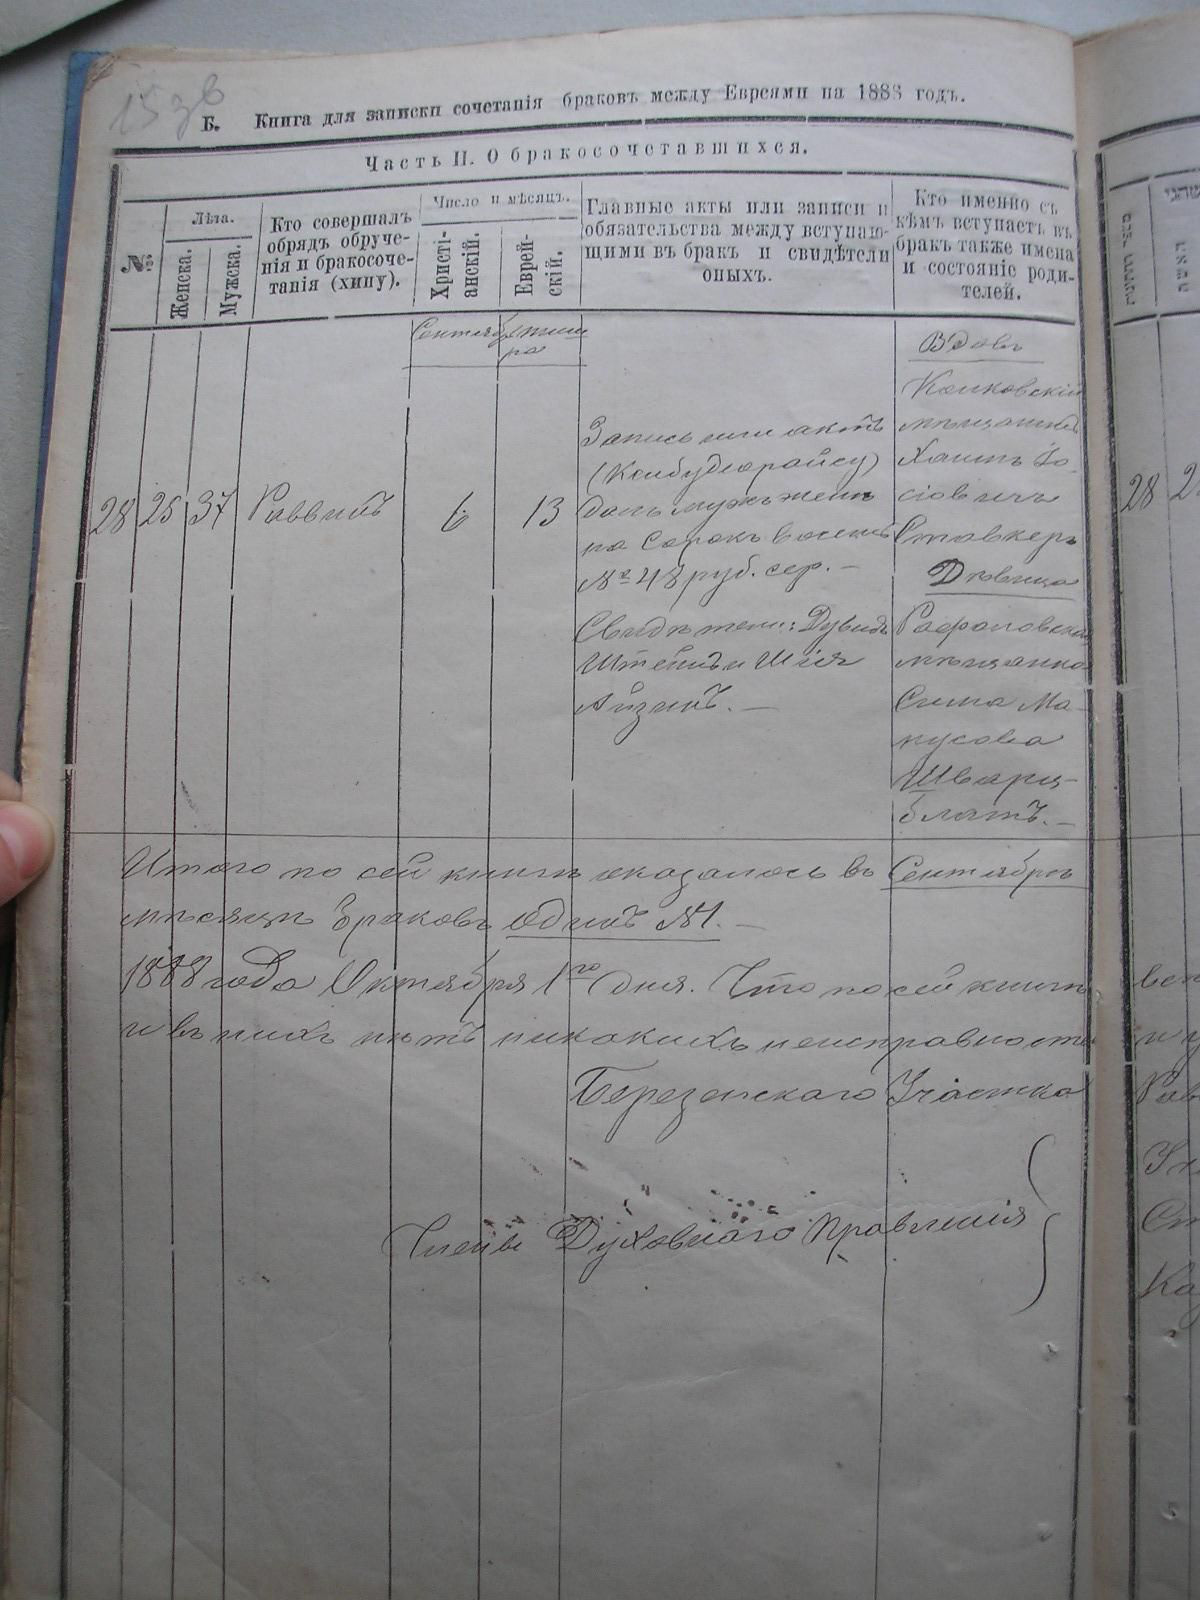 15 зв
Б. Книга для записки сочетанія браковъ между Евреями на 1888 годъ.
Часть II. О бракосочетавшихся.
№.
Лѣта.
Женска.
Мужска.
Кто совершалъ
обрядъ обруче-
нія и бракосоче-
танія (хипу).
Число и мѣсяцъ.
Христі-
анскій.
Еврей-
скій.
Главные акты или записи и
обязательства между вступаю-
щими въ бракъ и свидѣтели
оныхъ.
Кто именно съ
кѣмъ вступаетъ въ
бракъ также имена
и состояніе роди-
телей.
Сентября
Тишра
28 25 37 Раввинъ 6 13
Запись или актъ
(Ксибудеорайсу)
далъ мужъ женѣ
на сорокъ восемь
№ 48 руб. сер. —
Свидѣтели: Дувидъ
Штейнъ и Шія
Айзинъ. —
Вдовъ
Колковскій
мѣщанинъ
Хаимъ Іо-
сіовичъ
Ставкеръ
Дѣвица
Рафаловская
мѣщанка
Сима Ма-
нусова
Шварц-
блатъ. —
Итого по сей книгѣ оказалось въ Сентябрѣ
мѣсяцѣ браковъ одинъ №1. —
1888 года Октября 1го дня. Что по сей книгѣ
и въ нихъ нѣтъ никакихъ неисправностей
Березенскаго Участка
Члены Духовнаго Правленія
28